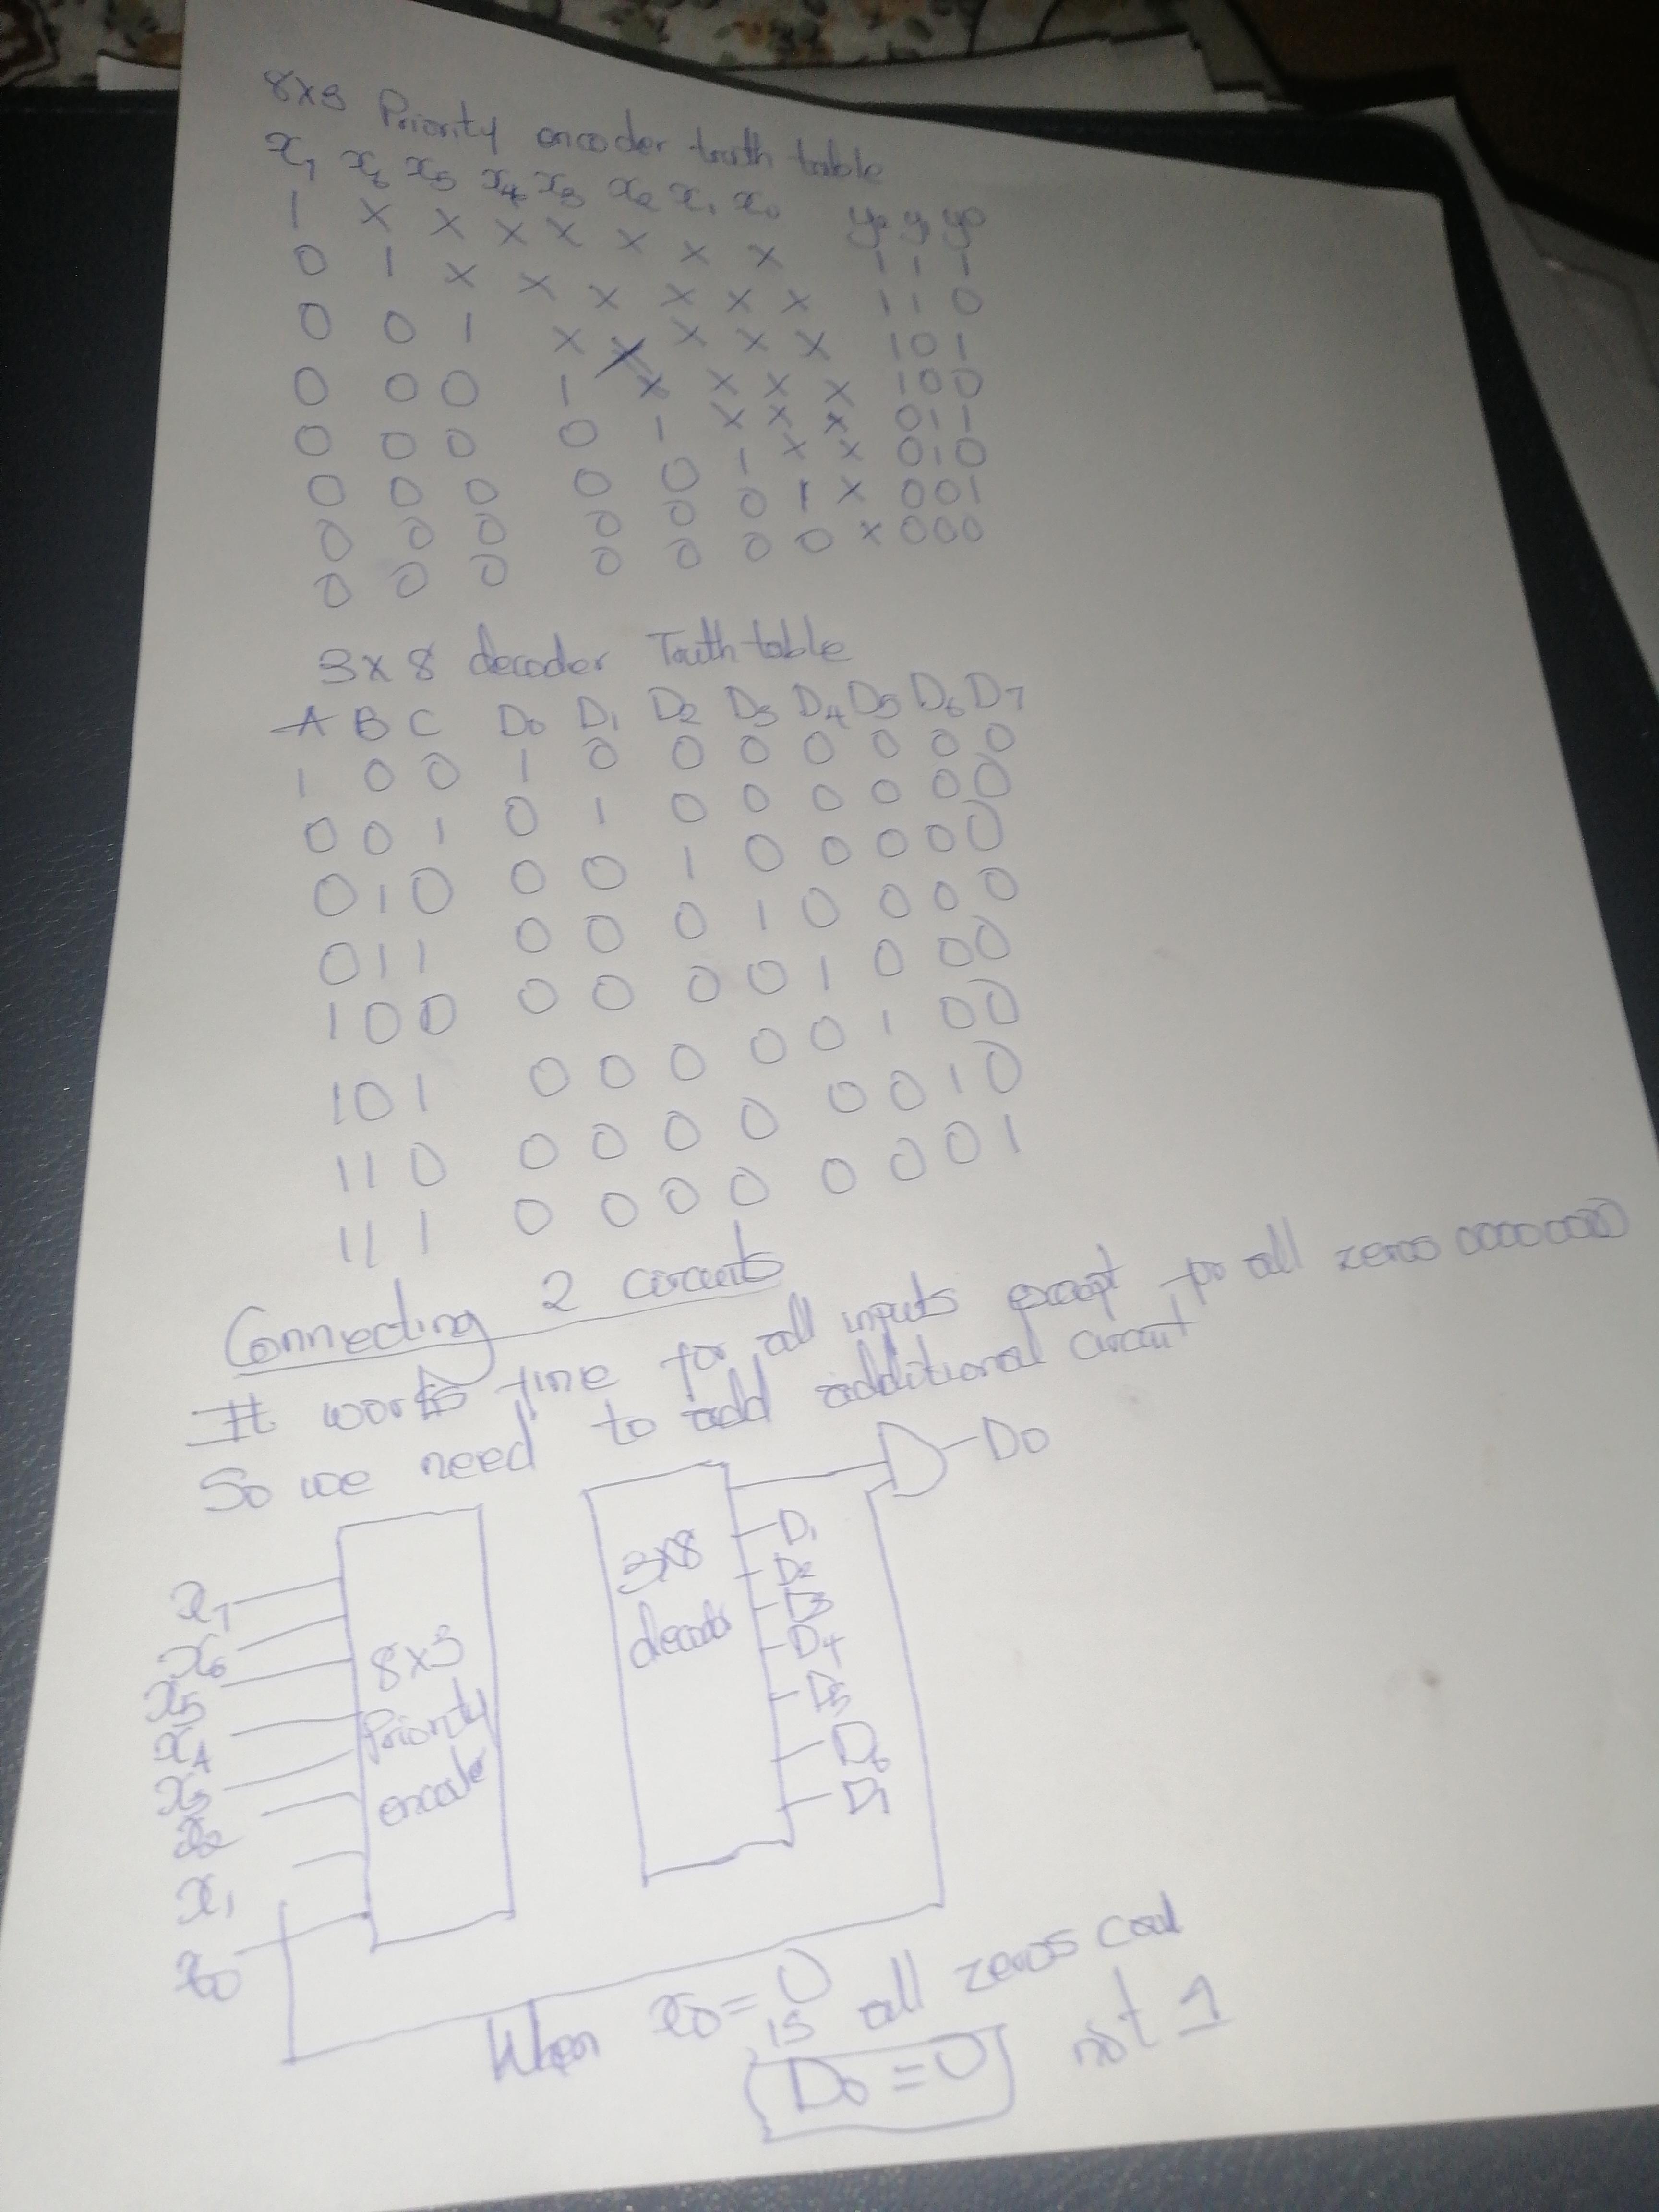 8x3 Priority encoder truth table
x7 x6 x5 x4 x3 x2 x1 x0 y2 y1 y0
1 x x x x x x x 1 1 1
0 1 x x x x x x 1 1 0
0 0 1 x x x x x 1 0 1
0 0 0 1 x x x x 1 0 0
0 0 0 0 1 x x x 0 1 1
0 0 0 0 0 1 x x 0 1 0
0 0 0 0 0 0 1 x 0 0 1
0 0 0 0 0 0 0 x 0 0 0
3x8 decoder Truth table
A B C D0 D1 D2 D3 D4 D5 D6 D7
1 0 0 1 0 0 0 0 0 0 0
0 0 1 0 1 0 0 0 0 0 0
0 1 0 0 0 1 0 0 0 0 0
0 1 1 0 0 0 1 0 0 0 0
1 0 0 0 0 0 0 1 0 0 0
1 0 1 0 0 0 0 0 1 0 0
1 1 0 0 0 0 0 0 0 1 0
1 1 1 0 0 0 0 0 0 0 1
Connecting 2 circuits
It works fine for all inputs except for all zeros 00000000
So we need to add additional circuit
D0
3x8
decoder
D1
D2
D3
D4
D5
D6
D7
x7
x6
x5
x4
x3
x2
x1
x0
8x3
Priority
encoder
When x0=0
is all zeros
D0=0 not 1